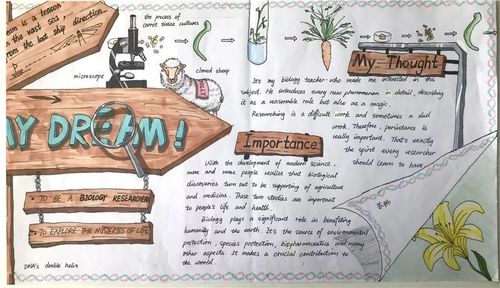 is a beacon
in the vast sea,
the lost ship direction.
the process of
carrot tissue cultures
microscope
cloned sheep
MY DREAM!
TO BE A BIOLOGY RESEARCHER
TO EXPLORE THE MISERIES OF LIFE
DNA's double helix
Importance
With the development of modern science,
more and more people realize that biological
discoveries turn out to be supporting of agriculture
and medicine. These two studies are important
to people's life and health.
Biology plays a significant role in benefiting
humanity and the earth. It's the source of environmental
protection, species protection, biopharmaceutics and many
other aspects. It makes a crucial contribution to
the world.
My Thought
It's my biology teacher who made me interested in this
subject. He introduces every new phenomenon in detail, describing
it as a reasonable rule but also as a magic.
Researching is a difficult work and sometimes a dull
work. Therefore, persistence is
really important. That's exactly
the spirit every researcher
should learn to have.